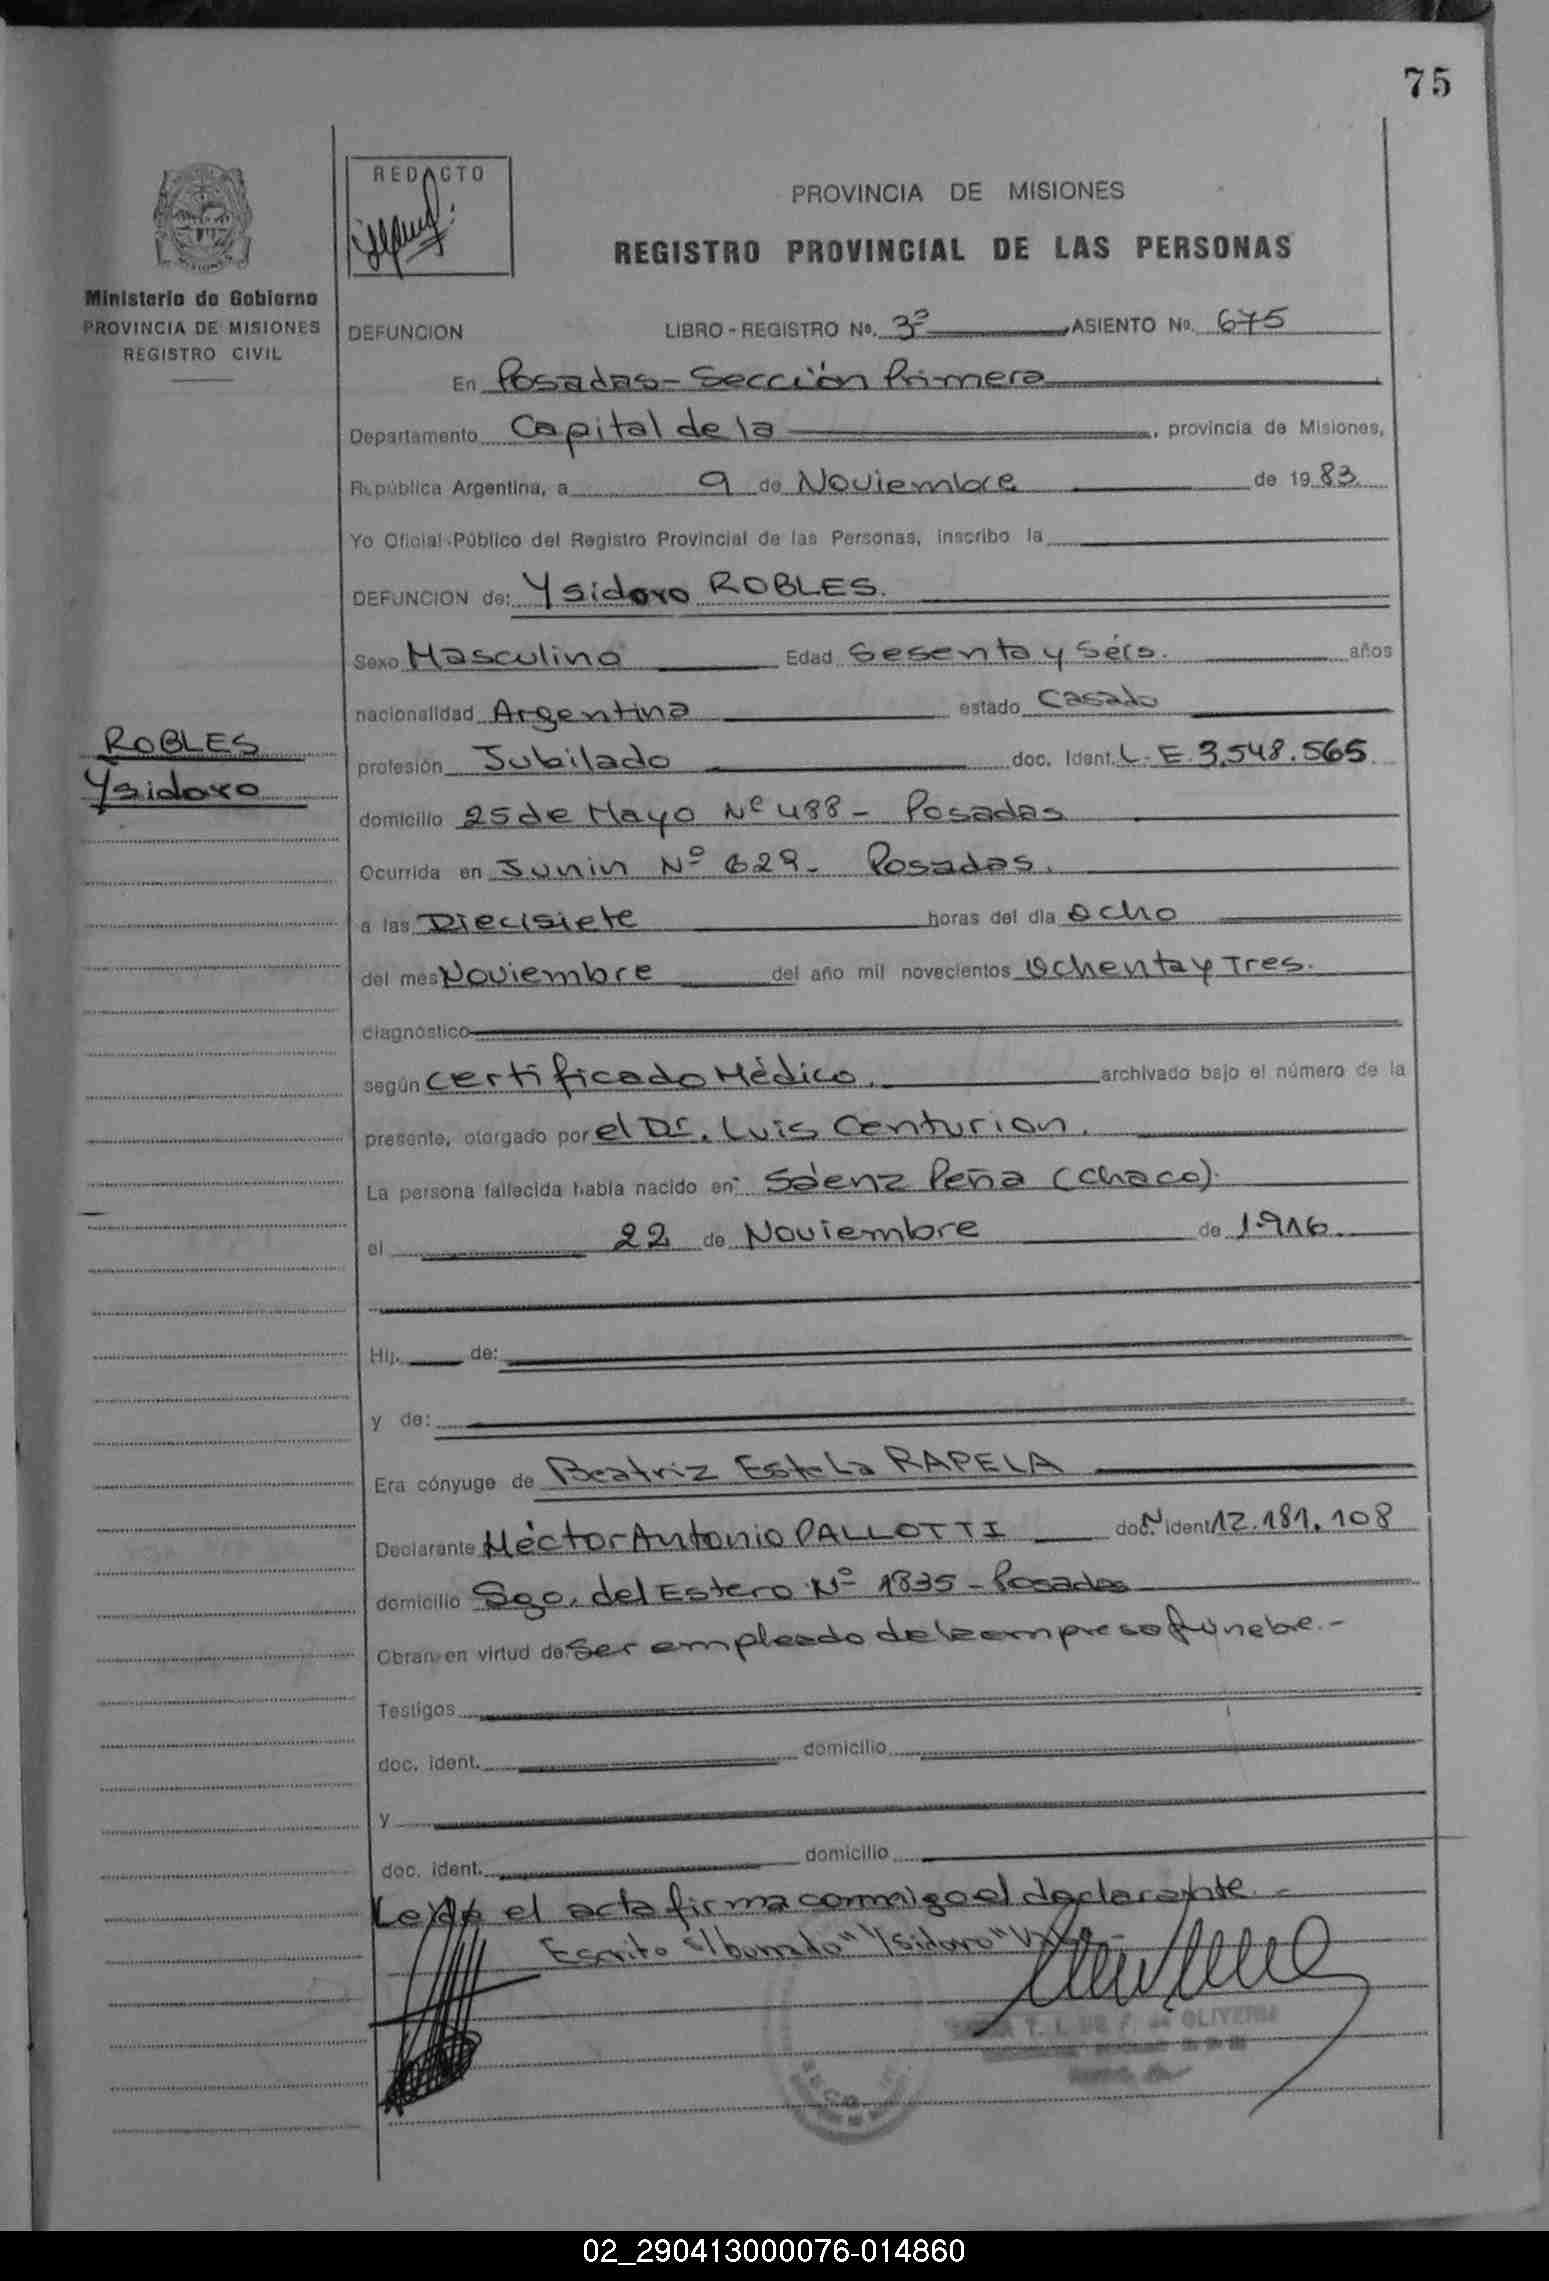 75
REDACTO
PROVINCIA DE MISIONES
REGISTRO PROVINCIAL DE LAS PERSONAS
Ministerio de Gobierno
PROVINCIA DE MISIONES
REGISTRO CIVIL
DEFUNCION LIBRO - REGISTRO No. 3º ASIENTO No. 675
En Posadas - Sección Primera
Departamento Capital de la, provincia de Misiones,
República Argentina, a 9 de Noviembre de 1983
Yo Oficial Público del Registro Provincial de las Personas, inscribo la
DEFUNCION de: Ysidoro ROBLES.
Sexo Masculino Edad Sesenta y Séis. años
nacionalidad Argentina estado Casado
ROBLES
Ysidoro
profesión Jubilado doc. Ident. L. E. 3.548.565
domicilio 25 de Mayo Nº 488 - Posadas
Ocurrida en Junin Nº 629 - Posadas.
a las Diecisiete horas del día ocho
del mes Noviembre del año mil novecientos Ochenta y Tres.
diagnóstico
según certificado Médico. archivado bajo el número de la
presente, otorgado por el Dr. Luis Centurion.
La persona fallecida había nacido en: Sáenz Peña (Chaco).
el 22 de Noviembre de 1.916
Hij. de:
y de:
Era cónyuge de Beatriz Estela RAPELA
Declarante Héctor Antonio PALLOTTI doc. N ident 12.181.108
domicilio Sgo. del Estero Nº 1835 - Posadas
Obran en virtud de Ser empleado de la empresa fúnebre. -
Testigos
doc. ident. domicilio
y
doc. ident. domicilio
Leída el acta firma conmigo el declarante. -
Escrito s/borrado "Ysidoro"
OLIVEIRA
02_290413000076-014860